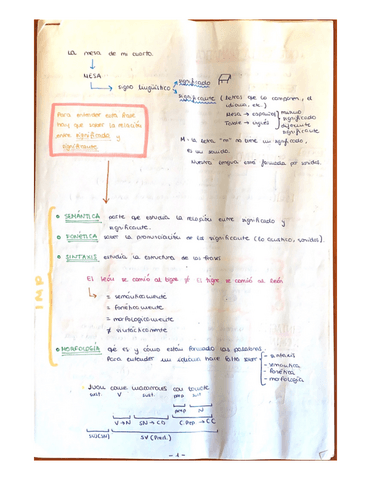 La mesa de mi cuarto.
MESA
Signo lingüístico
significado
significante (Letras que lo componen, el
idioma, etc.)
Mesa → español
mismo
significado
Table → inglés
diferente
significante
Para entender esta frase
hay que saber la relación
entre significado y
significante.
M → la letra "m" no tiene un significado,
es un sonido.
Nuestra lengua está formada por sonidos.
IMP
SEMÁNTICA: parte que estudia la relación entre significado y
significante.
FONÉTICA: la pronunciación de la significante (lo acústico, sonidos).
SINTAXIS: estudia la estructura de las frases.
El león se comió al tigre ≠ El tigre se comió al león
= semánticamente
= fonéticamente
= morfologicamente
≠ sintácticamente
MORFOLOGÍA: qué es y cómo están formadas las palabras.
Para entender un idioma hace falta saber
- sintaxis
- semántica
- fonética
- morfología
Juan come macarrones con tomate
sust. V sust. prep sust
prep N
V→N SN→CD C.Prep→CC
SN(SUJ) SV(Pred.)
- 1 -